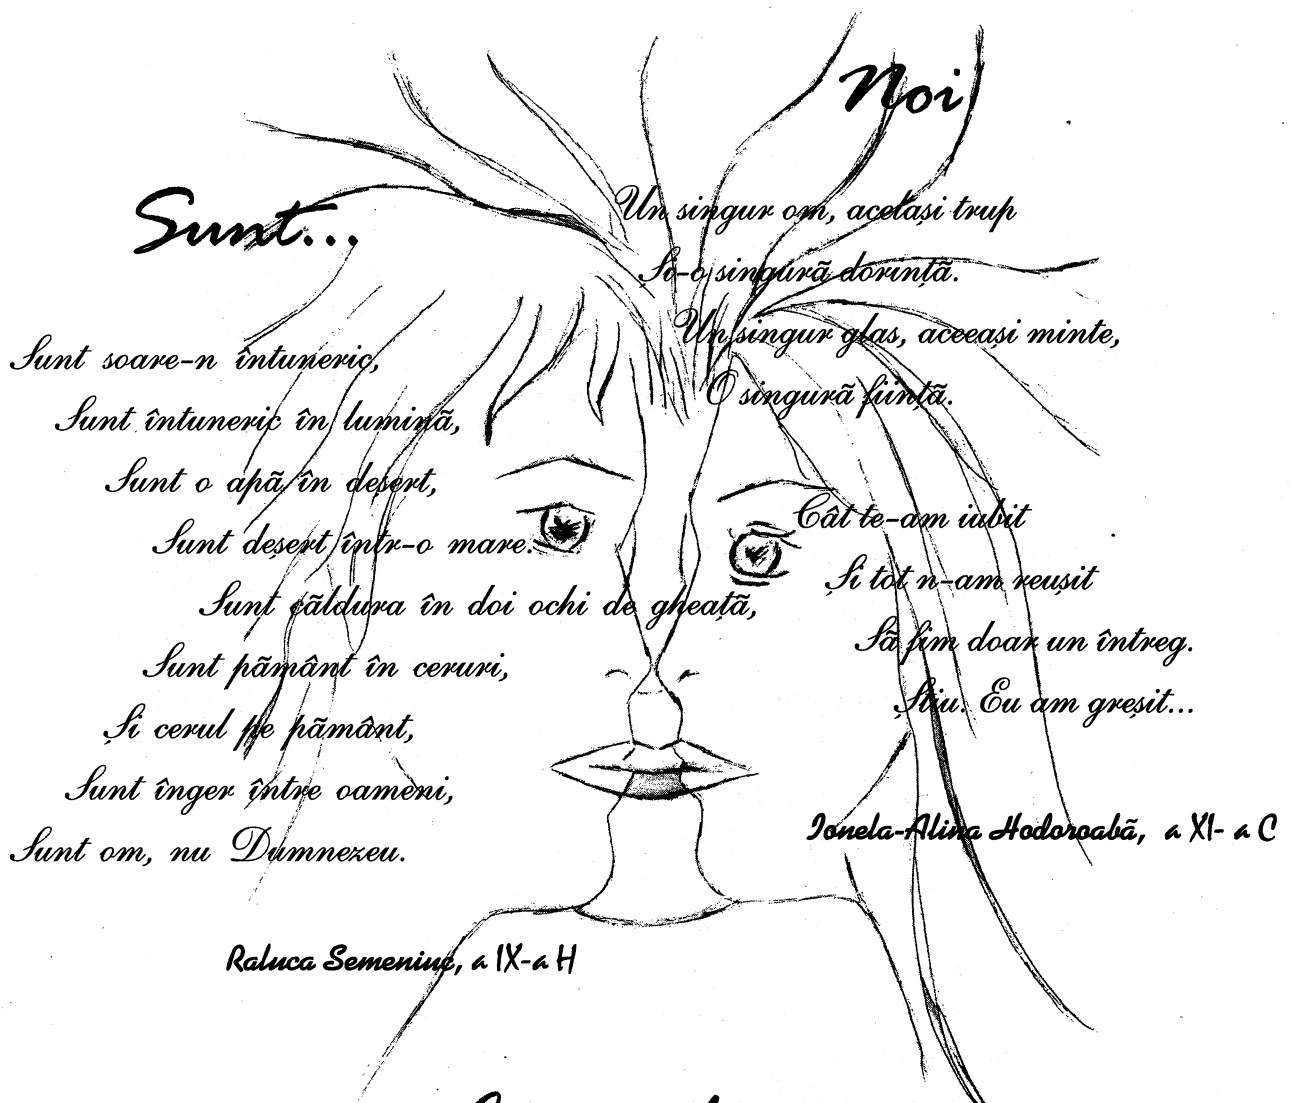 Sunt...
Sunt soare-n întuneric,
Sunt întuneric în lumină,
Sunt o apă în deșert,
Sunt deșert într-o mare.
Sunt căldura în doi ochi de gheață,
Sunt pământ în ceruri,
Și cerul pe pământ,
Sunt înger între oameni,
Sunt om, nu Dumnezeu.
Raluca Semeniuc, a IX-a H
Noi
Un singur om, același trup
Și-o singură dorință.
Un singur glas, aceeași minte,
O singură ființă.
Cât te-am iubit
Și tot n-am reușit
Să fim doar un întreg.
Știu. Eu am greșit...
Ionela-Alina Hodoroabă, a XI- a C